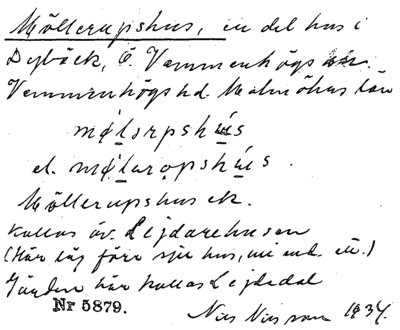 Möllerupshus, en del hus i
Dybäck, Ö. Vemmenhögs sn.
Vemmenhögs hd. Malmöhus län
møl̲ərpshu̲s
el. møl̲arọpshu̲s.
Möllerupshus ek.
Kallas äv. Lejdarehusen
(Här låg förr sju hus, nu end. ett.)
Gården här kallas Lejdedal
Nr 5879.
Nils Nilsson 1934.